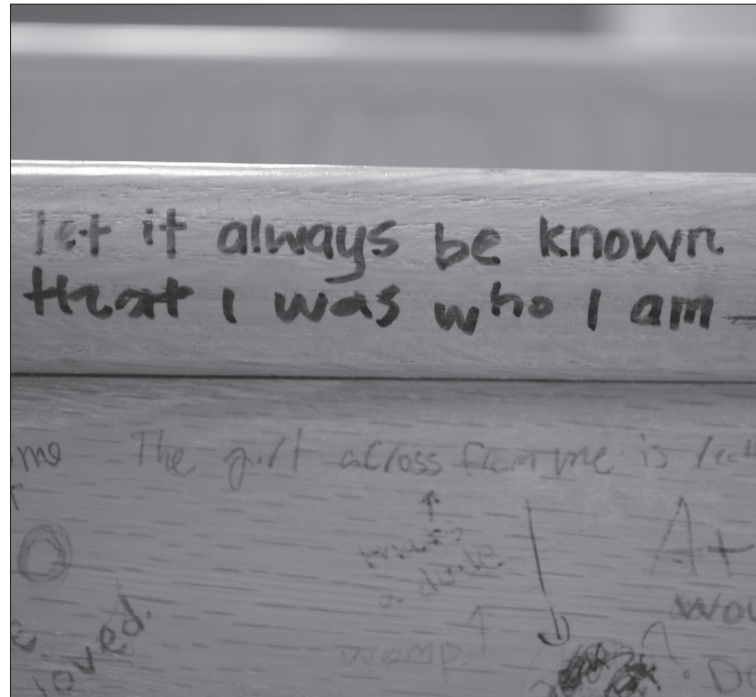 let it always be known
that I was who I am
me The girl across from me is
that's
a dude.
A+
womp.
loved.